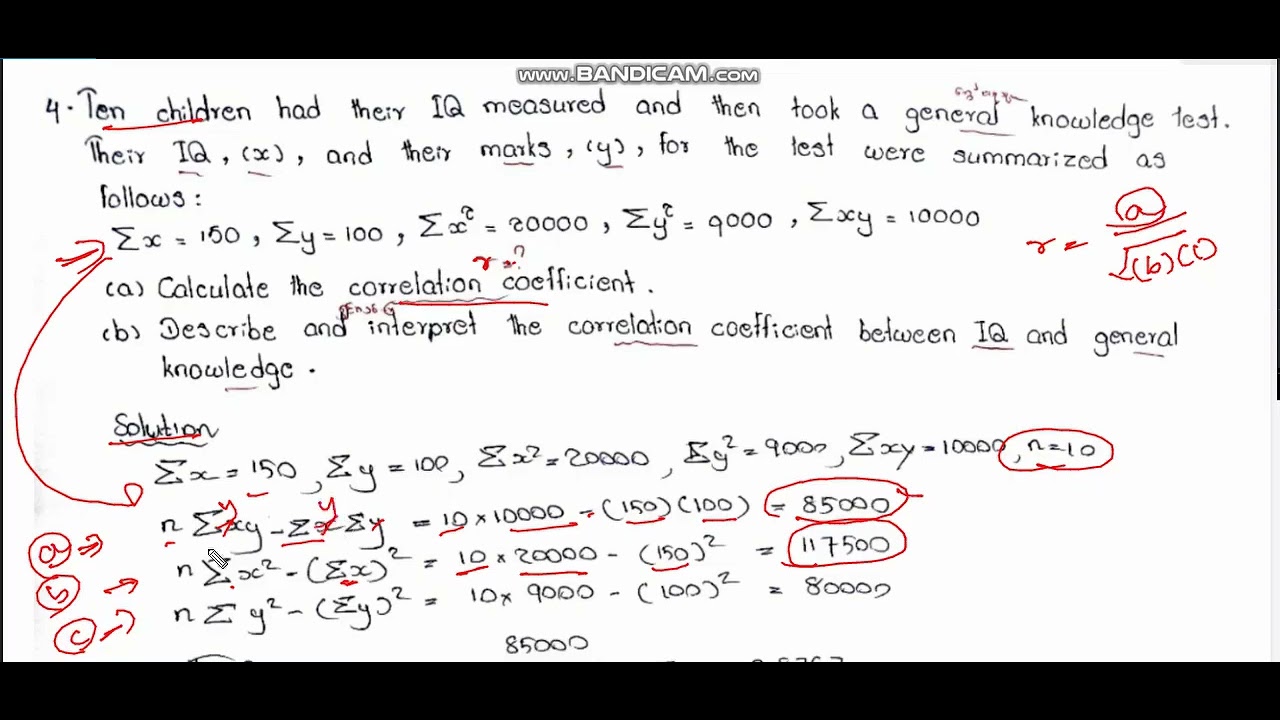 www.BANDICAM.com
4. Ten children had their IQ measured and then took a general knowledge test.
Their IQ, (x), and their marks, (y), for the test were summarized as
follows:
Σx = 150, Σy = 100, Σx² = 20000, Σy² = 9000, Σxy = 10000
r = a / √(b)(c)
r = ?
(a) Calculate the correlation coefficient.
(b) Describe and interpret the correlation coefficient between IQ and general
knowledge.
Solution
Σx = 150, Σy = 100, Σx² = 20000, Σy² = 9000, Σxy = 10000, n = 10
a ⇒ n Σxy - Σx Σy = 10 × 10000 - (150)(100) = 85000
b → n Σx² - (Σx)² = 10 × 20000 - (150)² = 117500
c → n Σy² - (Σy)² = 10 × 9000 - (100)² = 80000
85000